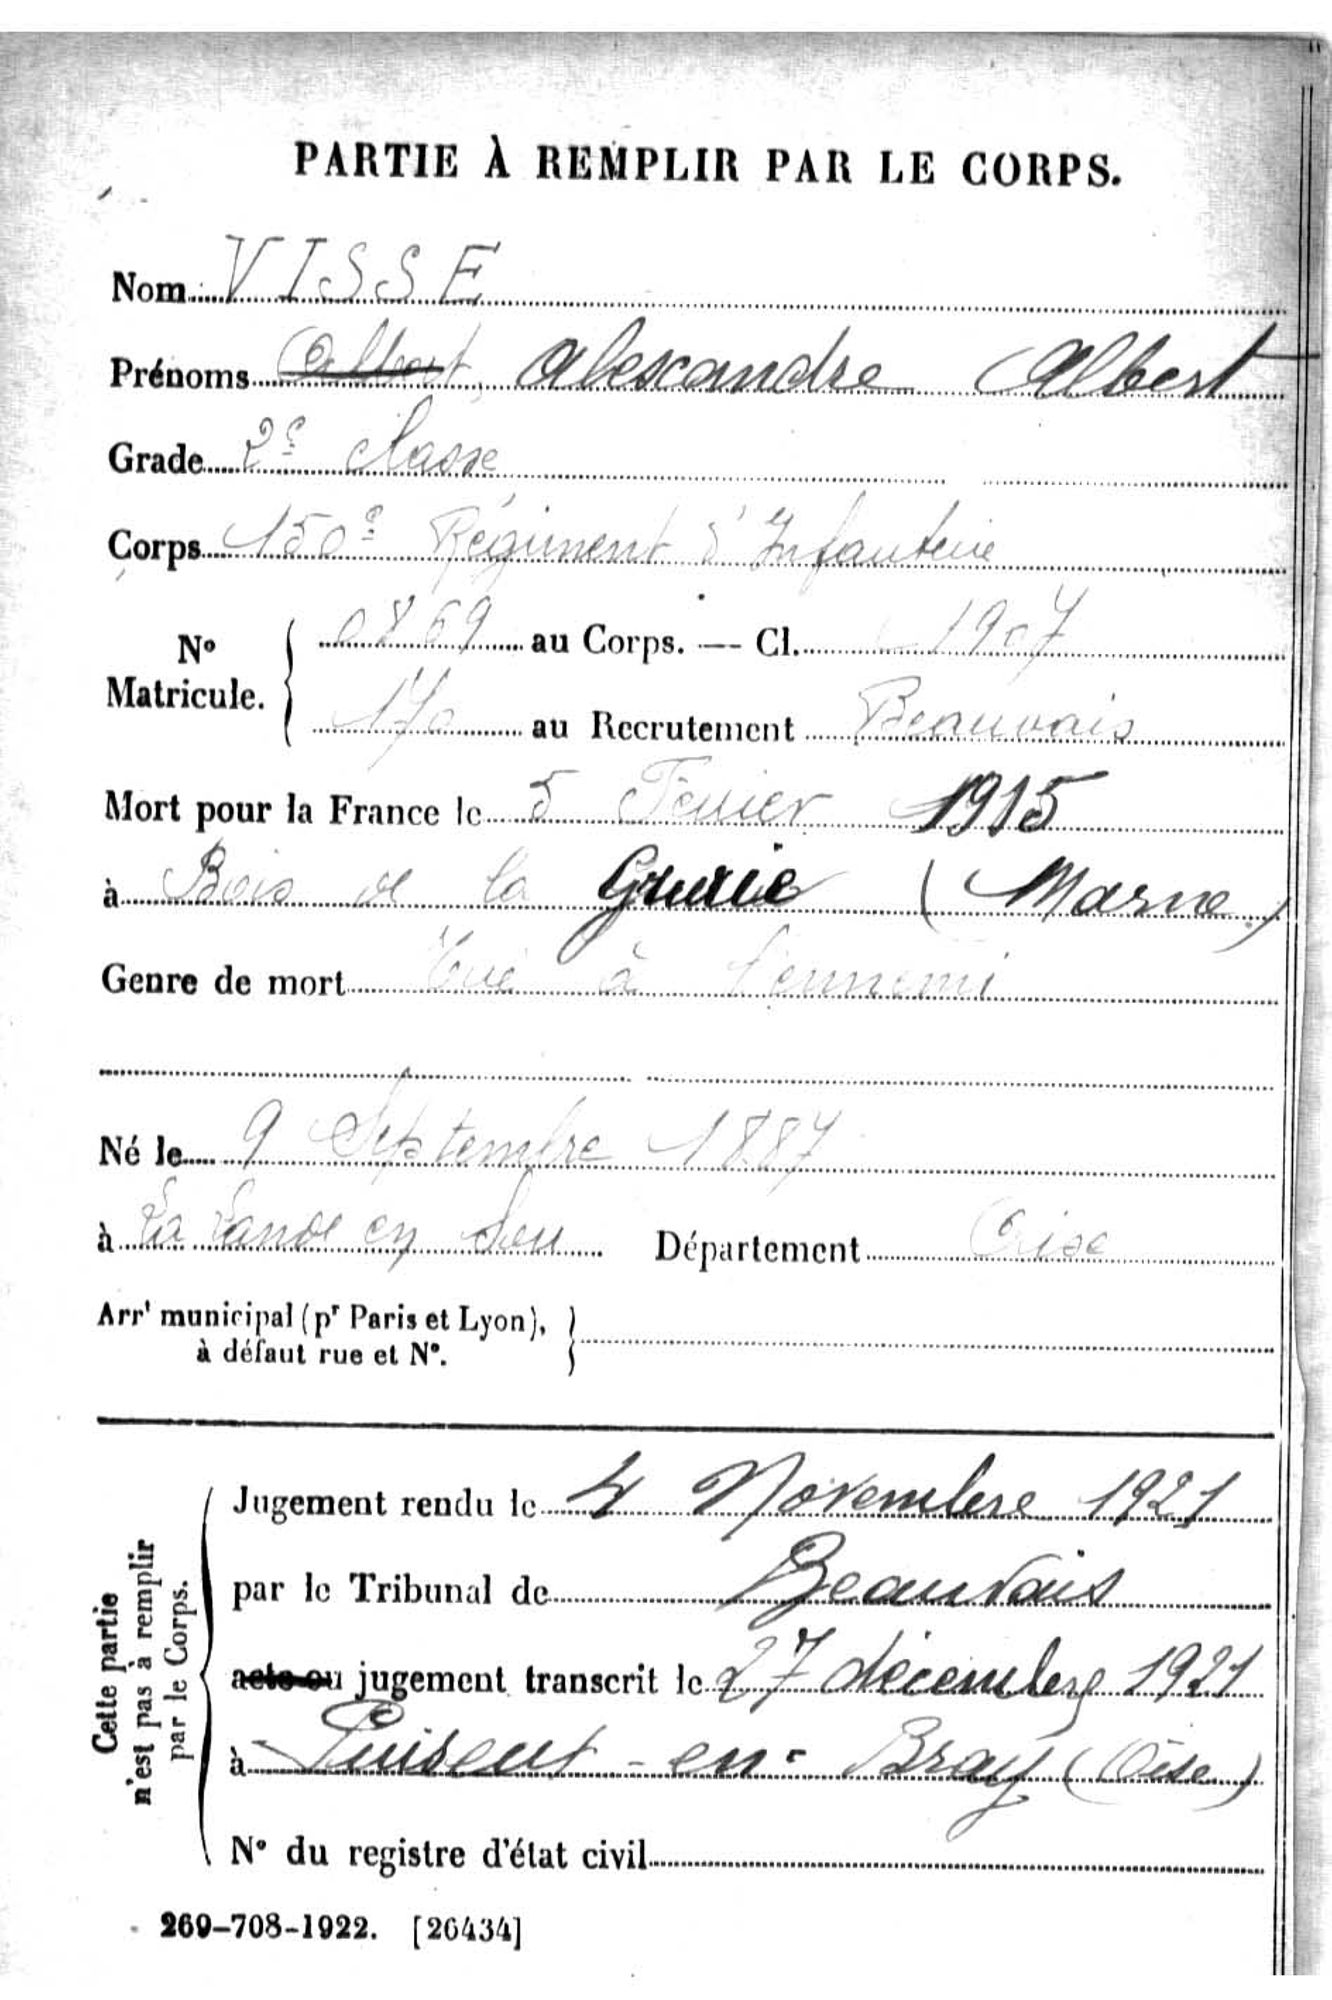 PARTIE À REMPLIR PAR LE CORPS.
Nom VISSE
Prénoms Albert, Alexandre Albert
Grade 2e classe
Corps 150e Régiment d'Infanterie
No Matricule. 0869 au Corps. — Cl. 1907
170 au Recrutement Beauvais
Mort pour la France le 5 Fevrier 1915
à Bois de la Grurie (Marne)
Genre de mort Tué à l'ennemi
Né le 9 Septembre 1887
à La Lande en Son Département Oise
Arrt municipal (pr Paris et Lyon),
à défaut rue et No.
Cette partie
n'est pas à remplir
par le Corps.
Jugement rendu le 4 Novembre 1921
par le Tribunal de Beauvais
acte ou jugement transcrit le 27 décembre 1921
à Puiseux-en-Bray (Oise)
No du registre d'état civil
269-708-1922. [26434]